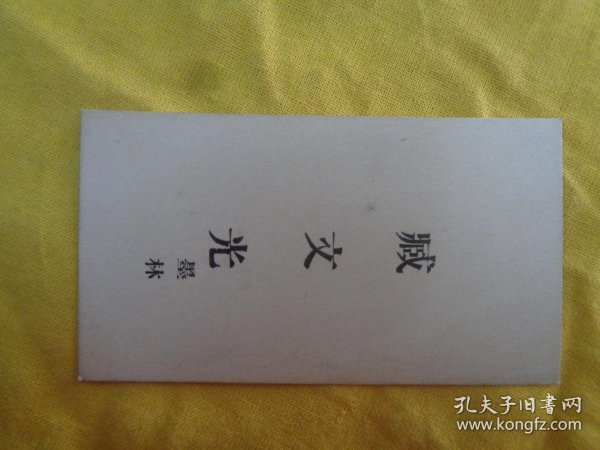 臧文光
墨林
孔夫子旧書网
www.kongfz.com